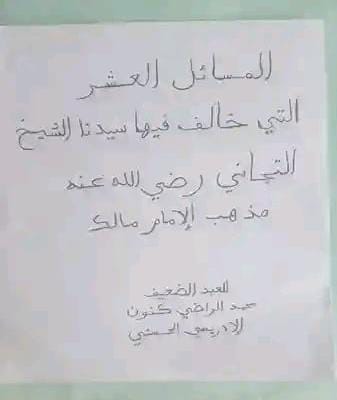 المسائل العشر
التي خالف فيها سيدنا الشيخ
التجاني رضي الله عنه
مذهب الإمام مالك
للعبد الضعيف
محمد الراضي كنون
الإدريسي الحسني